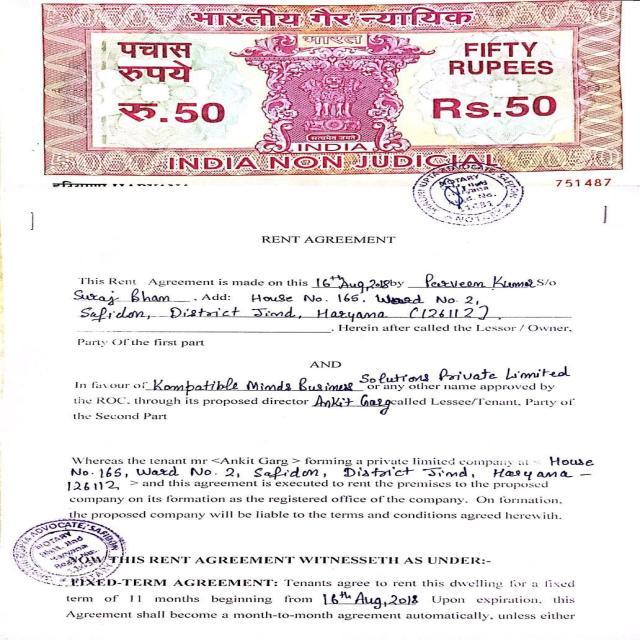 भारतीय गैर न्यायिक
भारत
पचास
रुपये
रु.50
FIFTY
RUPEES
Rs.50
सत्यमेव जयते
INDIA
INDIA NON JUDICIAL
हरियाणा HARYANA
751487
NOTARY
RENT AGREEMENT
This Rent Agreement is made on this 16th Aug, 2018 by Parveen Kumar S/o
Suraj Bhan. Add: House No. 165, Ward No. 2,
Safidon, District Jind, Haryana (126112)
. Herein after called the Lessor / Owner,
Party Of the first part
AND
In favour of Kompatible Minds Business Solutions Private Limited or any other name approved by
the ROC, through its proposed director Ankit Garg called Lessee/Tenant, Party of
the Second Part
Whereas the tenant mr <Ankit Garg > forming a private limited company at < House
No. 165, Ward No. 2, Safidon, District Jind, Haryana -
126112 > and this agreement is executed to rent the premises to the proposed
company on its formation as the registered office of the company. On formation,
the proposed company will be liable to the terms and conditions agreed herewith.
ADVOCATE, SAFIDON
NOTARY
NOW THIS RENT AGREEMENT WITNESSETH AS UNDER:-
FIXED-TERM AGREEMENT: Tenants agree to rent this dwelling for a fixed
term of 11 months beginning from 16th Aug, 2018 Upon expiration, this
Agreement shall become a month-to-month agreement automatically, unless either